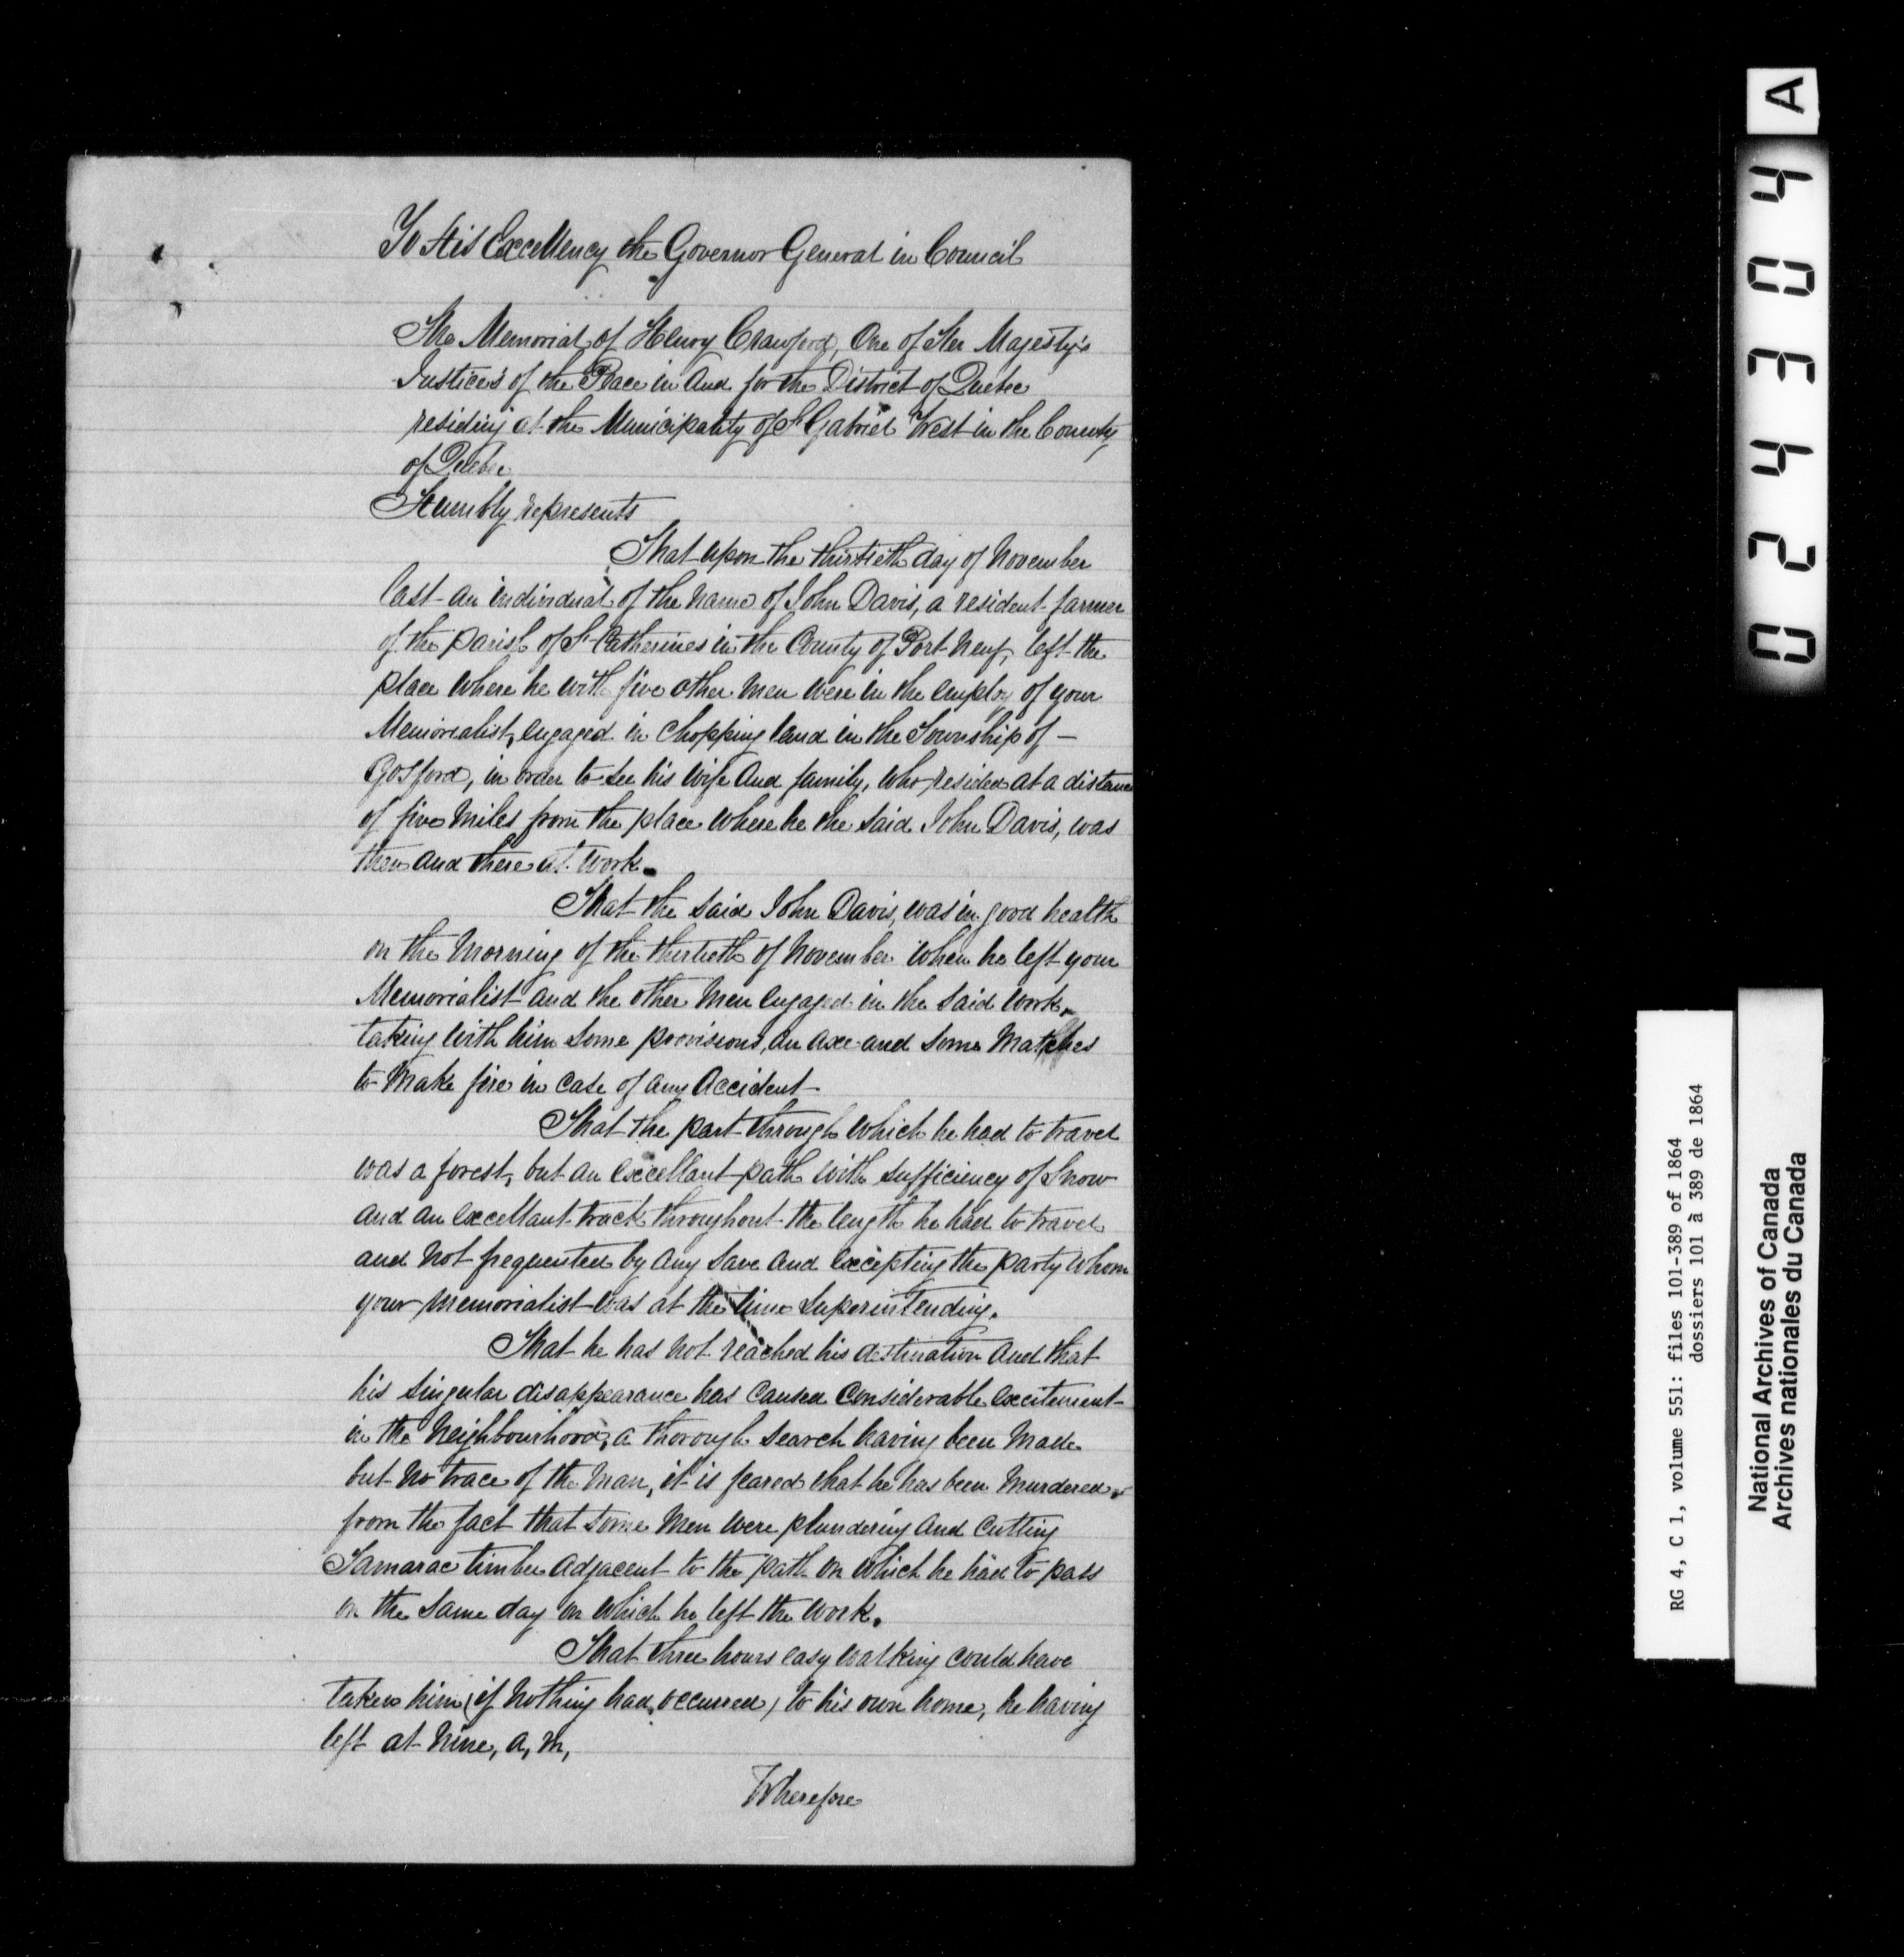 To His Excellency the Governor General in Council
The Memorial of Henry Crawford, One of Her Majesty's
Justices of the Peace in And for the District of Quebec
residing at the Municipality of St Gabriel West in the County
of Quebec
Humbly represents
That upon the thirtieth day of November
last an individual of the name of John Davis, a resident farmer
of the parish of St Catherines in the County of Port Neuf, left the
place where he with five other men were in the employ of your
Memorialist, engaged in chopping land in the Township of —
Gosford, in order to see his wife and family, who resided at a distance
of five miles from the place where he the said John Davis, was
then and there at work.
That the said John Davis, was in good health
on the morning of the thirtieth of November when he left your
Memorialist and the other men engaged in the said work,
taking with him some provisions, an axe and some matches
to make fire in case of any accident
That the part through which he had to travel
was a forest, but an excellant path with sufficiency of snow
and an excellant track throughout the length he had to travel
and not frequented by any save and excepting the party whom
your memorialist was at the time superintending.
That he has not reached his destination and that
his singular disappearance has caused considerable excitement
in the neighbourhood, a thorough search having been made
but no trace of the man, it is feared that he has been murdered,
from the fact that some men were plundering and cutting
Tamarac timber adjacent to the path on which he had to pass
on the same day on which he left the work.
That three hours easy walking could have
taken him (if nothing had occurred) to his own home, he having
left at nine, a, m,
Wherefore
A
0 4 2 4 3 0 4
RG 4, C 1, volume 551: files 101-389 of 1864
dossiers 101 à 389 de 1864
National Archives of Canada
Archives nationales du Canada